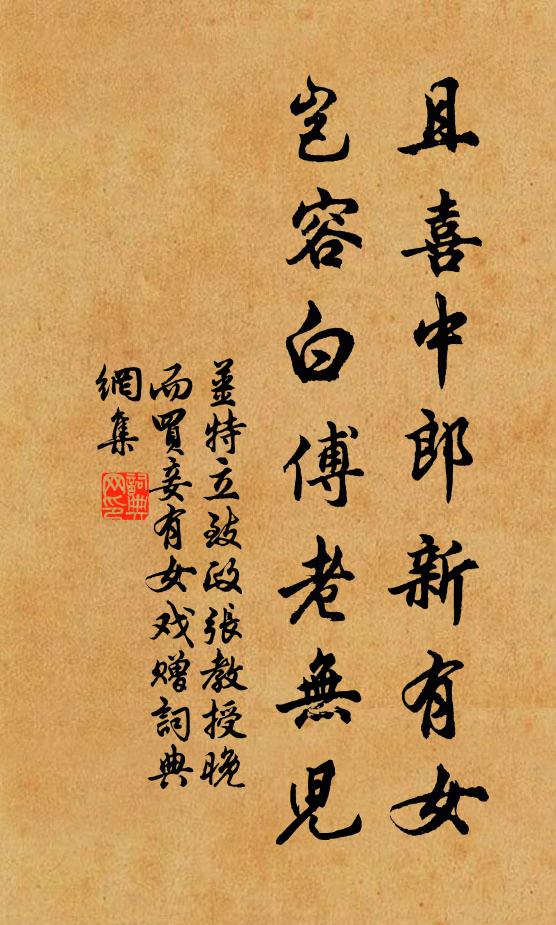 且喜中郎新有女
岂容白傅老無児
姜特立致政張教授晚
而買妾有女戏赠詞典
網集
詞典
网印